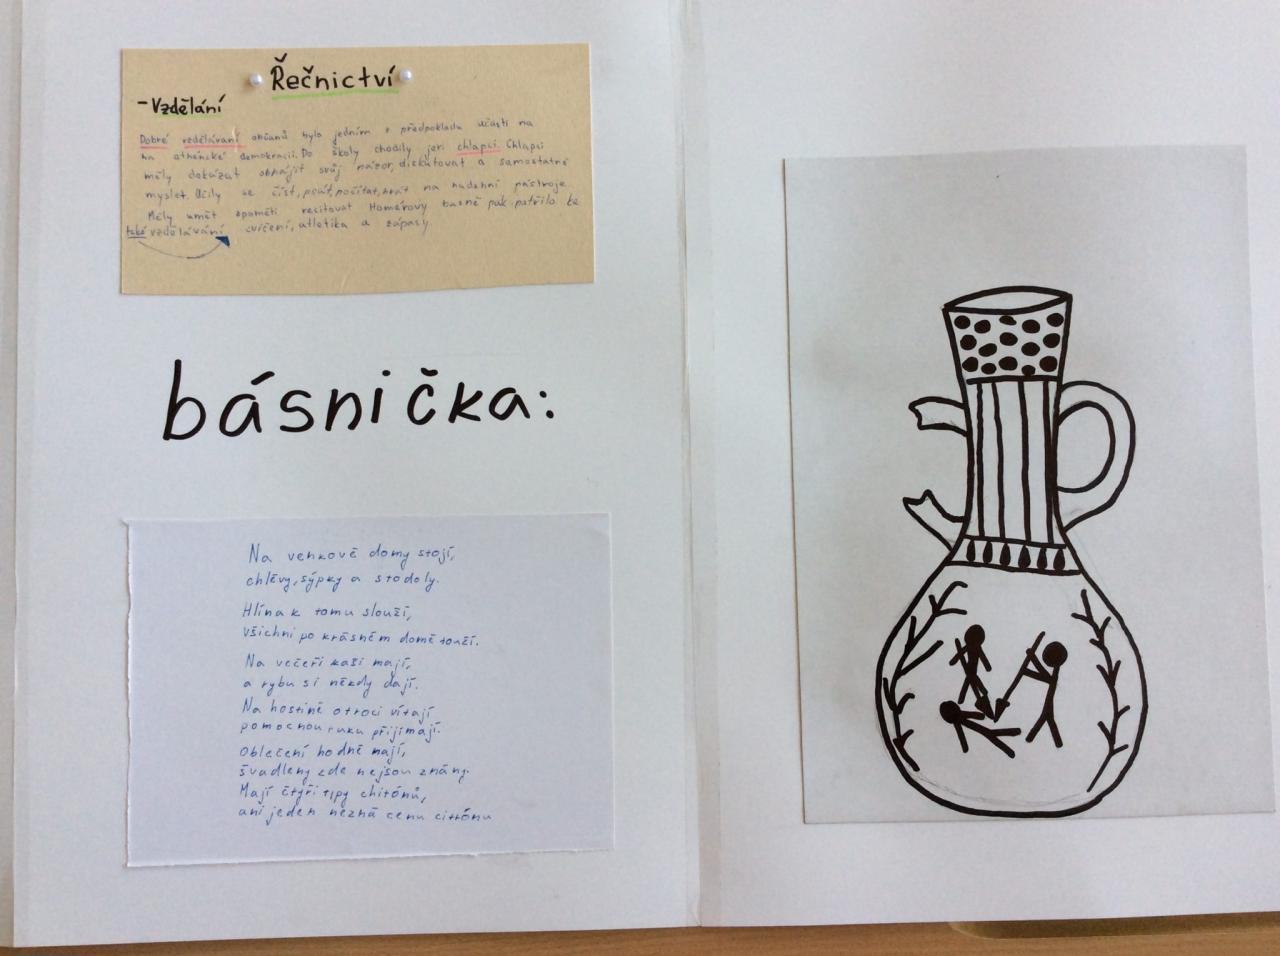 Řečnictví
- Vzdělání
Dobré vzdělávaní občanů bylo jedním z předpokladu účasti na
na athénské demokracii. Do školy chodily jen chlapci. Chlapci
měly dokázat obhájit svůj názor, diskutovat a samostatně
myslet. Učily se číst, psát, počítat, hrát na hudební nástroje.
Měly umět zpaměti recitovat Homérovy basně pak patřilo ke
také vzdělávání cvičení, atletika a zápasy.
básnička:
Na venkově domy stojí,
chlévy, sýpky a stodoly.
Hlína k tomu slouží,
všichni po krásném domě touží.
Na večeři kaši mají,
a rybu si někdy dají.
Na hostině otroci vítají
pomocnou ruku přijímají.
Oblečení hodně mají,
švadleny zde nejsou znány.
Mají čtyři typy chitónů,
ani jeden nezná cenu citrónu